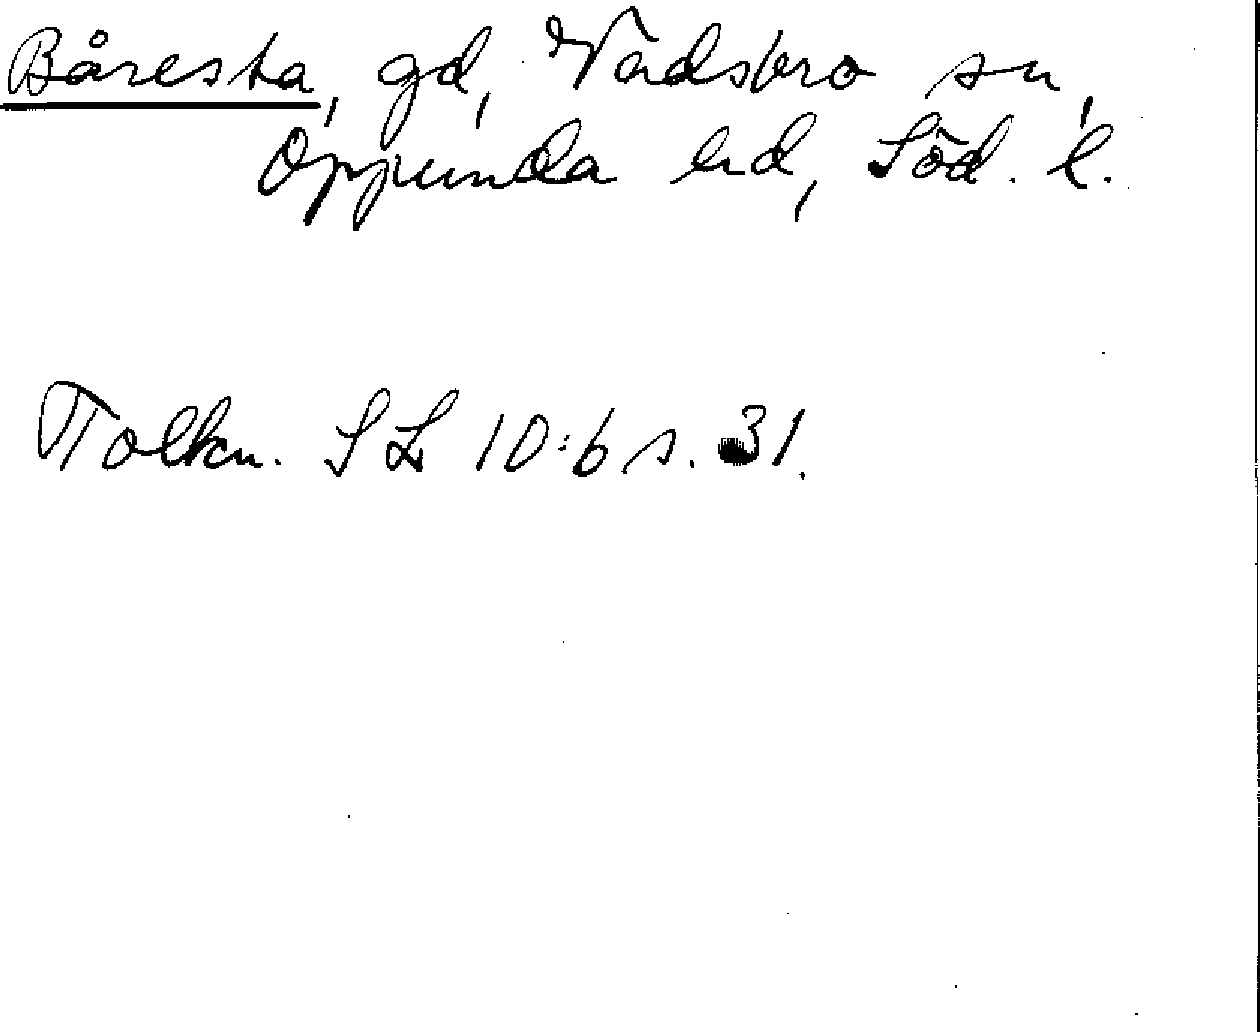 Båresta, gd, Vadsbro sn,
Oppunda hd, Söd. l.
Tolkn. SL 10:6 s. 31.